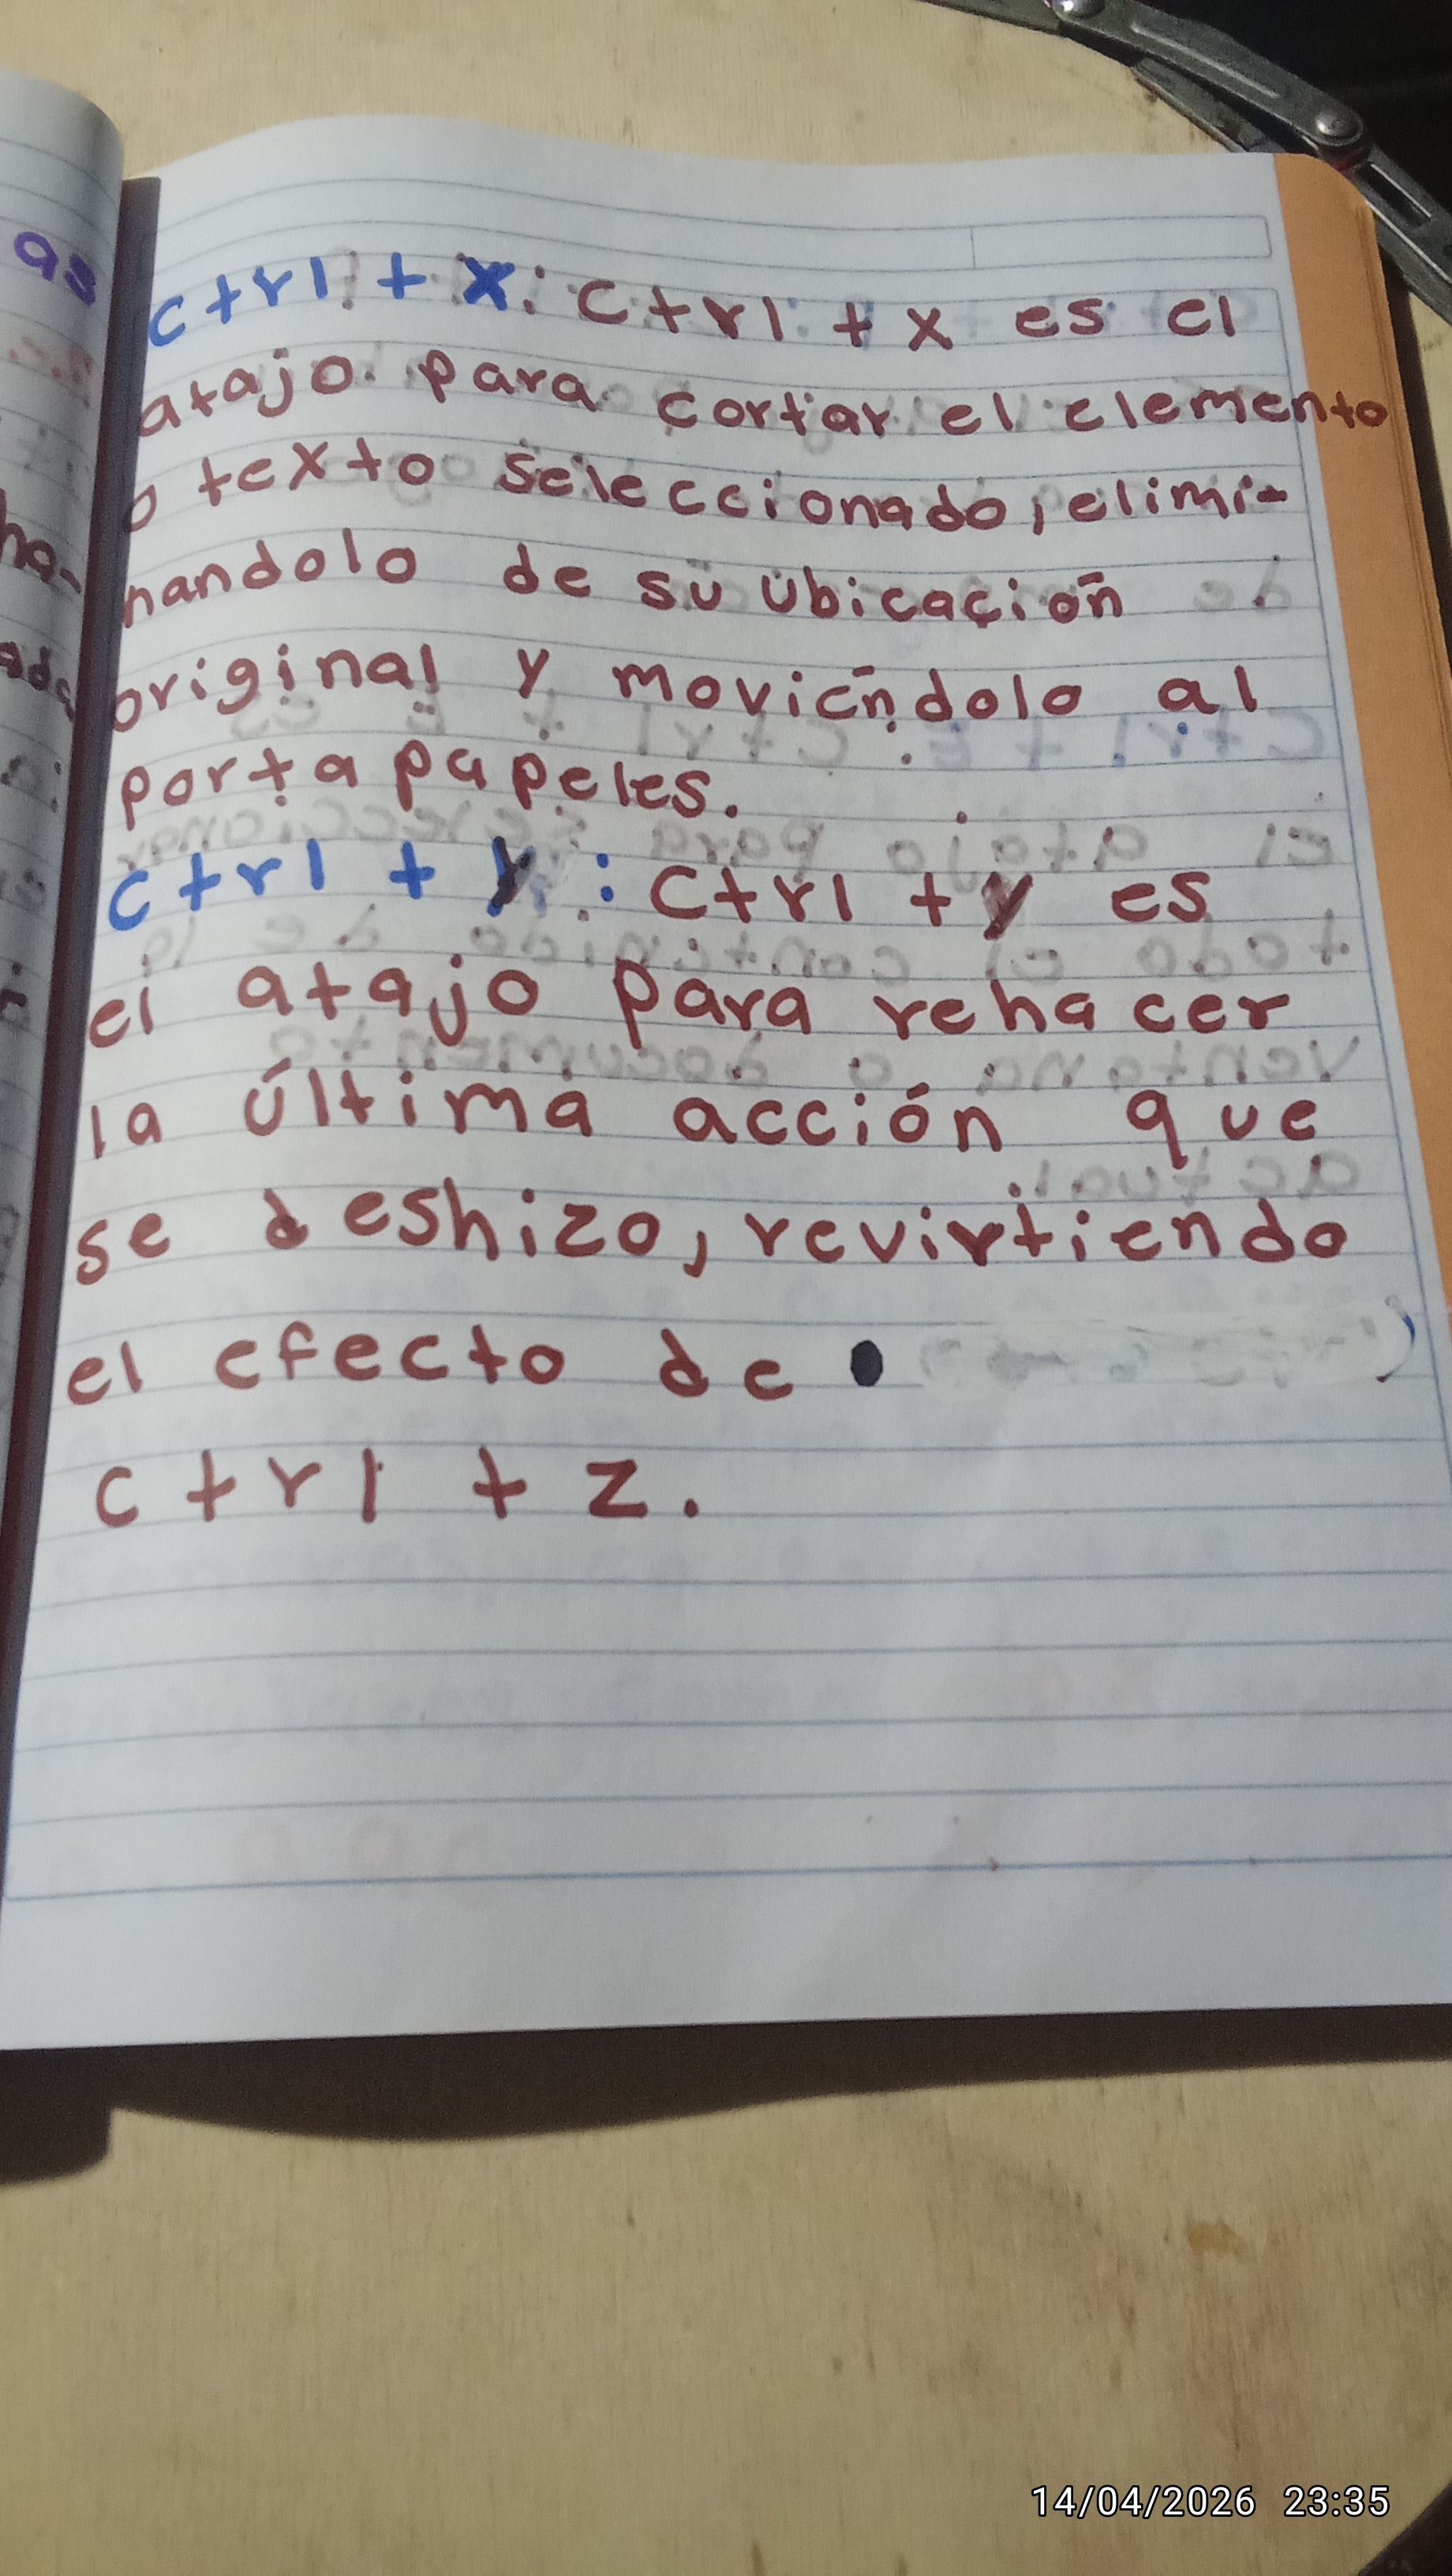 as
ctrl + x: ctrl + x es el
atajo para cortar el elemento
o texto seleccionado, elimi-
nandolo de su ubicación
original y moviéndolo al
portapapeles.
ctrl + y : ctrl + y es
el atajo para rehacer
la última acción que
se deshizo, revirtiendo
el efecto de
ctrl + z.
14/04/2026 23:35